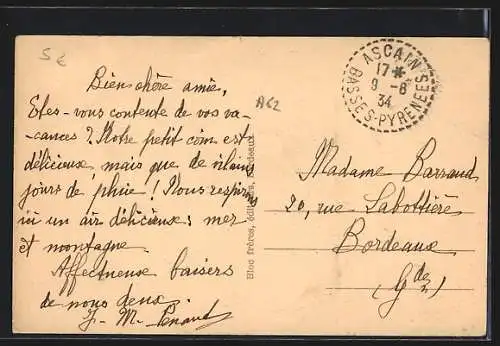 5 €
Bien chère amie,
Etes-vous contente de vos va-
cances ? Notre petit coin est
délicieux, mais que de vilains
jours de pluie ! Nous respirons
ici un air délicieux : mer
et montagne.
Affectueux baisers
de nous deux.
J. M. Penaud
A62
ASCAIN
17 *
9 - 8
34
BASSES-PYRENEES
Bloc frères, éditeurs, Bordeaux
Madame Barraud
20, rue Labottière
Bordeaux
(Gde)